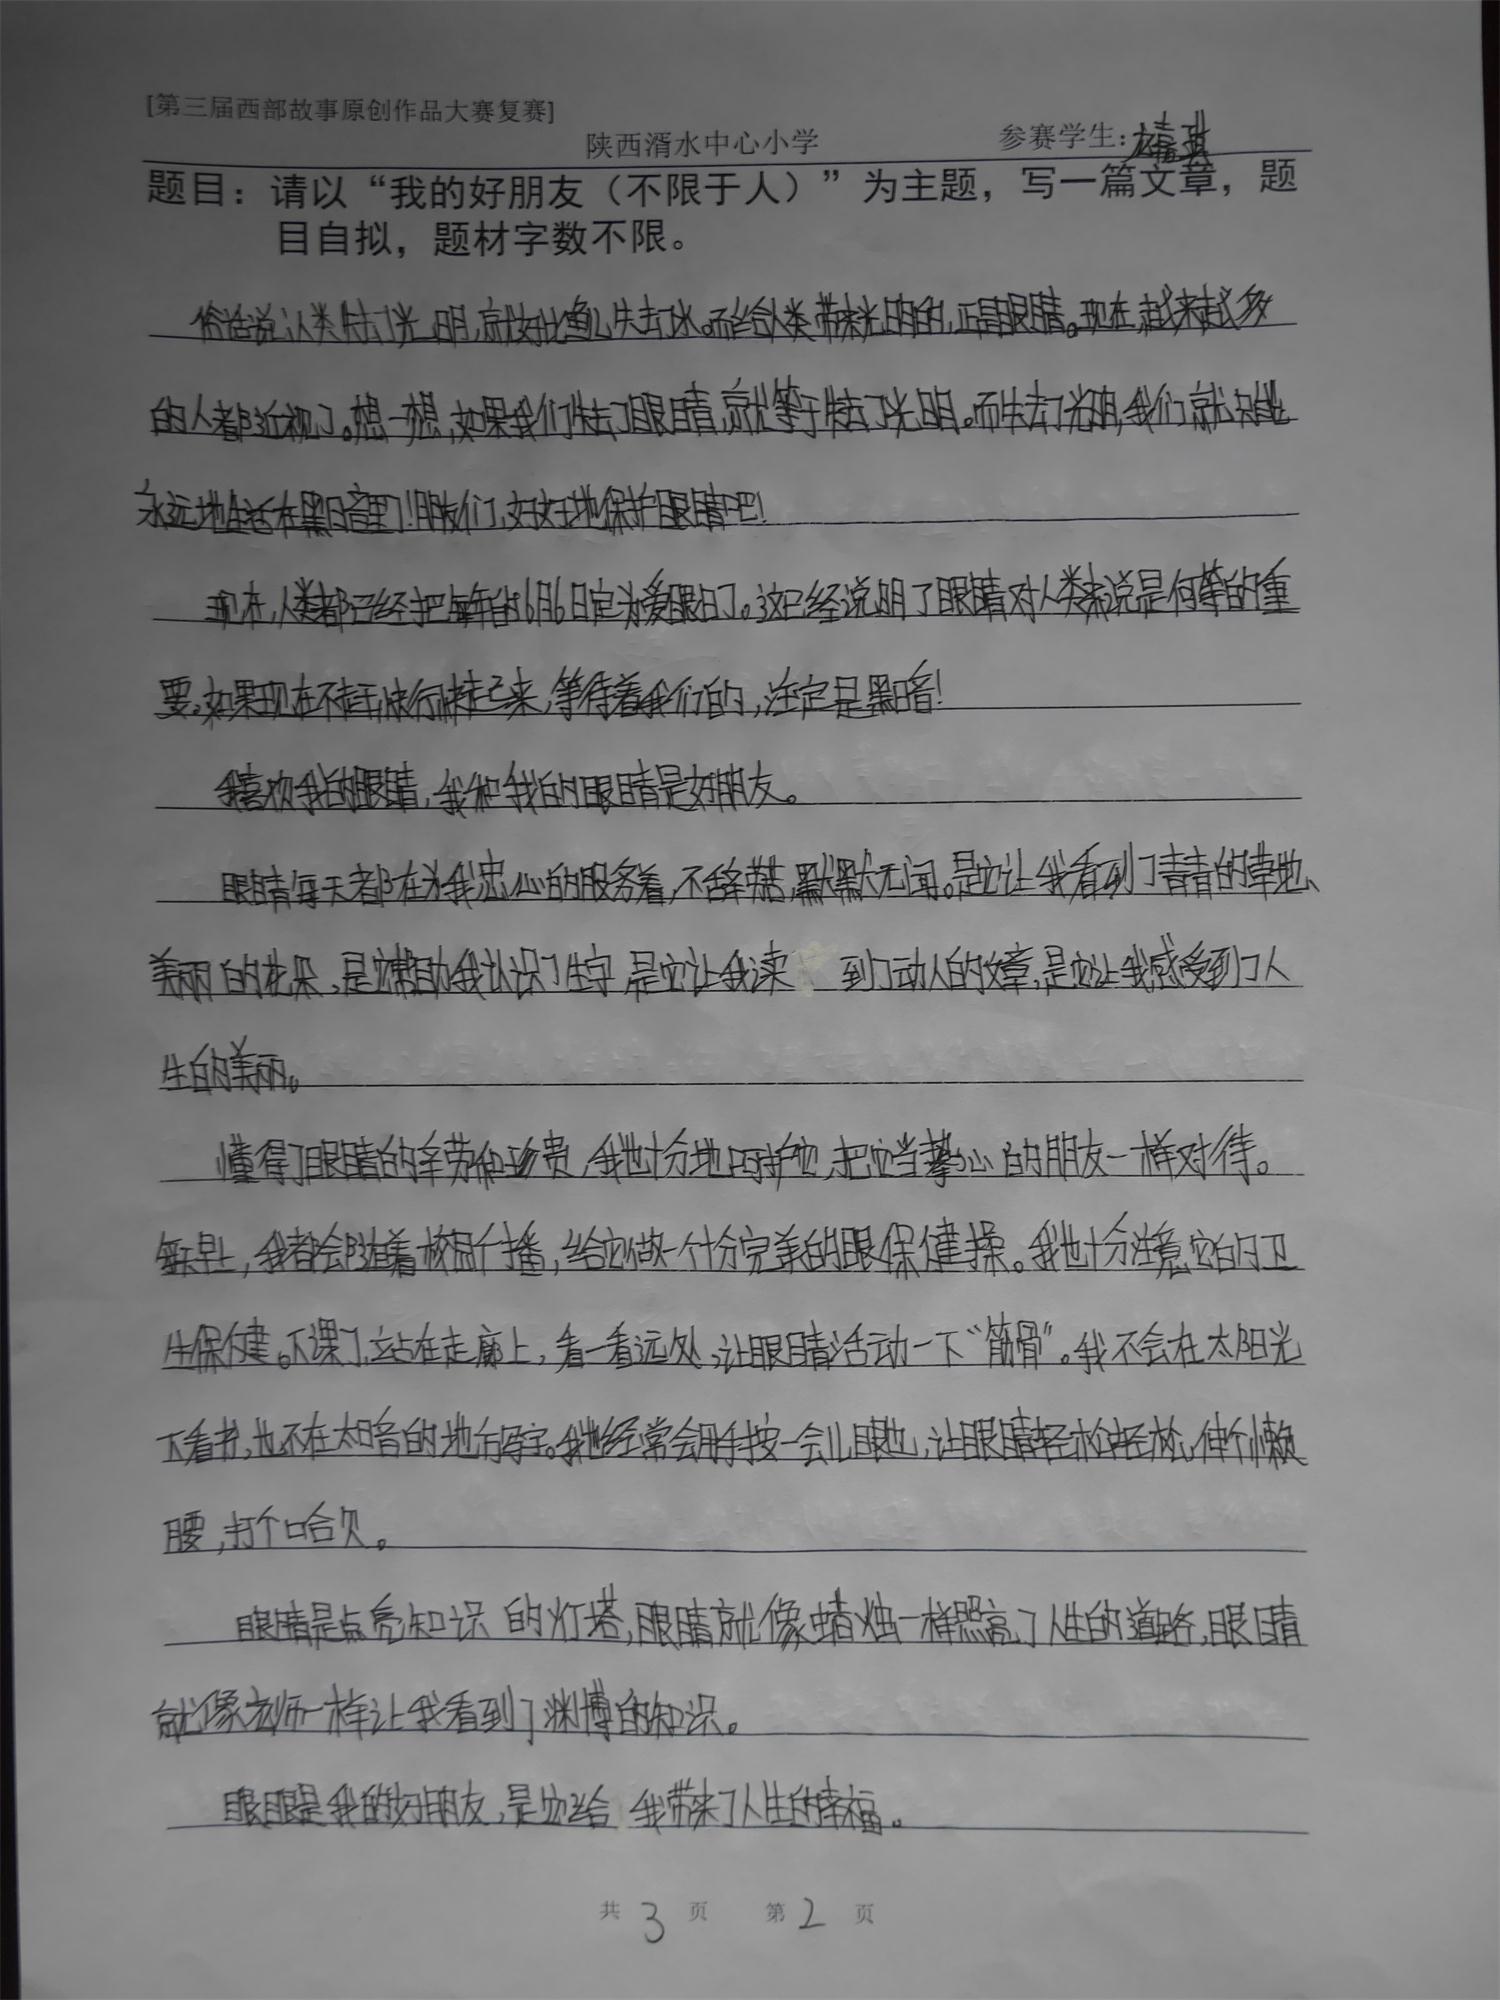 [第三届西部故事原创作品大赛复赛]
陕西湑水中心小学 参赛学生：
题目：请以“我的好朋友（不限于人）”为主题，写一篇文章，题
目自拟，题材字数不限。
俗话说：人类失去了光明，就好比鱼儿失去了水。而给人类带来光明的，正是眼睛。现在，越来越多
的人都近视了。想一想，如果我们失去了眼睛，就等于失去了光明。而失去了光明，我们就只能
永远地生活在黑暗里了！朋友们，好好地保护眼睛吧！
现在，人类都已经把每年的6月6日定为爱眼日了。这已经说明了眼睛对人类来说是何等的重
要。如果现在不赶快行快起来，等待着我们的，注定是黑暗！
我喜欢我的眼睛，我和我的眼睛是好朋友。
眼睛每天都在为我忠心的服务着，不辞劳苦，默默无闻。是它让我看到了青青的草地、
美丽的花朵，是它帮助我认识了生字，是它让我读到了动人的文章，是它让我感受到了人
生的美丽。
懂得了眼睛的辛劳和珍贵，我也十分地呵护它，把它当挚心的朋友一样对待。
每天早上，我都会随着校园广播，给它做一个十分完美的眼保健操。我也十分注意它的卫
生保健。下课了，站在走廊上，看一看远处，让眼睛活动一下“筋骨”。我不会在太阳光
下看书，也不在太暗的地方写字。我也经常会用手按一会儿眼也，让眼睛轻松轻松，伸个懒
腰，打个哈欠。
眼睛是点亮知识的灯塔，眼睛就像蜡烛一样照亮了人生的道路，眼睛
就像老师一样让我看到了渊博的知识。
眼眼是我的好朋友，是它给我带来了人生的幸福。
共 3 页 第 2 页